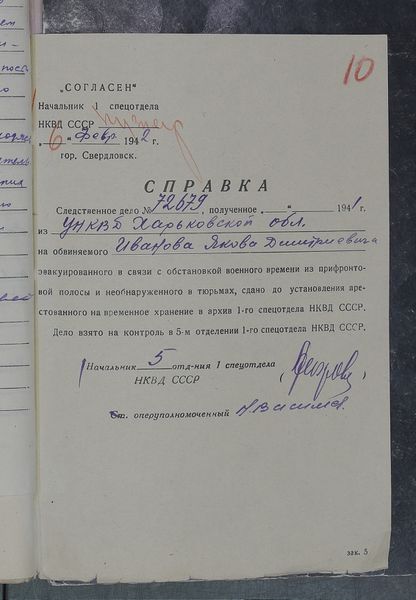 10
„СОГЛАСЕН“
Начальник 1 спецотдела
НКВД СССР
„6“ февр 1942 г.
гор. Свердловск.
СПРАВКА
Следственное дело № 72679, полученное „ “ 1941 г.
из УНКВД Харьковской обл.
на обвиняемого Иванова Якова Дмитриевича
эвакуированного в связи с обстановкой военного времени из прифронто-
вой полосы и необнаруженного в тюрьмах, сдано до установления аре-
стованного на временное хранение в архив 1-го спецотдела НКВД СССР.
Дело взято на контроль в 5-м отделении 1-го спецотдела НКВД СССР.
Начальник 5 отд-ния 1 спецотдела
НКВД СССР
Ст. оперуполномоченный
зак. 5